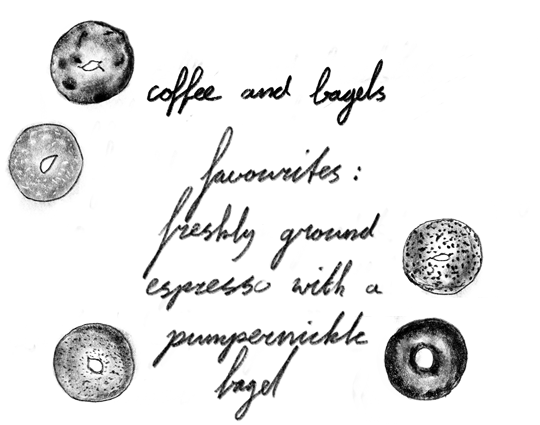 coffee and bagels
favourites:
freshly ground
espresso with a
pumpernickle
bagel